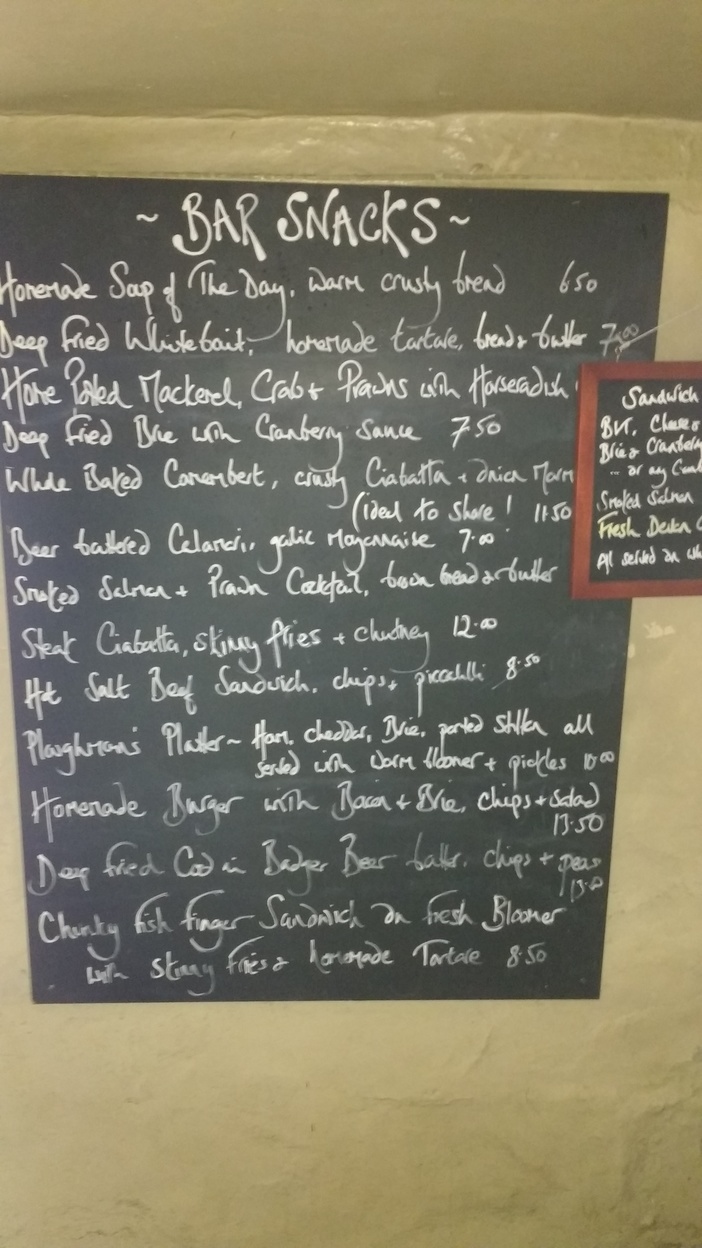 ~ BAR SNACKS ~
Homemade Soup of The Day, warm crusty bread 6.50
Deep Fried Whitebait, homemade tartare, bread + butter 7.00
Home Potted Mackerel, Crab + Prawns with Horseradish
Deep Fried Brie with Cranberry Sauce 7.50
Whole Baked Camembert, crusty Ciabatta + onion Marm
(ideal to share! 11.50
Beer battered Calamari, garlic Mayonnaise 7.00
Smoked Salmon + Prawn Cocktail, brown bread + butter
Steak Ciabatta, skinny fries + chutney 12.00
Hot Salt Beef Sandwich, chips, piccalilli 8.50
Ploughmans Platter ~ Ham, cheddar, Brie, ported Stilton all
served with warm bloomer + pickles 10.00
Homemade Burger with Bacon + Brie, chips + salad
13.50
Deep fried Cod in Badger Beer batter, chips + peas
Chunky fish finger Sandwich on fresh Bloomer
with skinny fries & homemade Tartare 8.50
Sandwich
BLT, Cheese
Brie & Cranberry
... or any
Smoked Salmon
Fresh
All served on wh